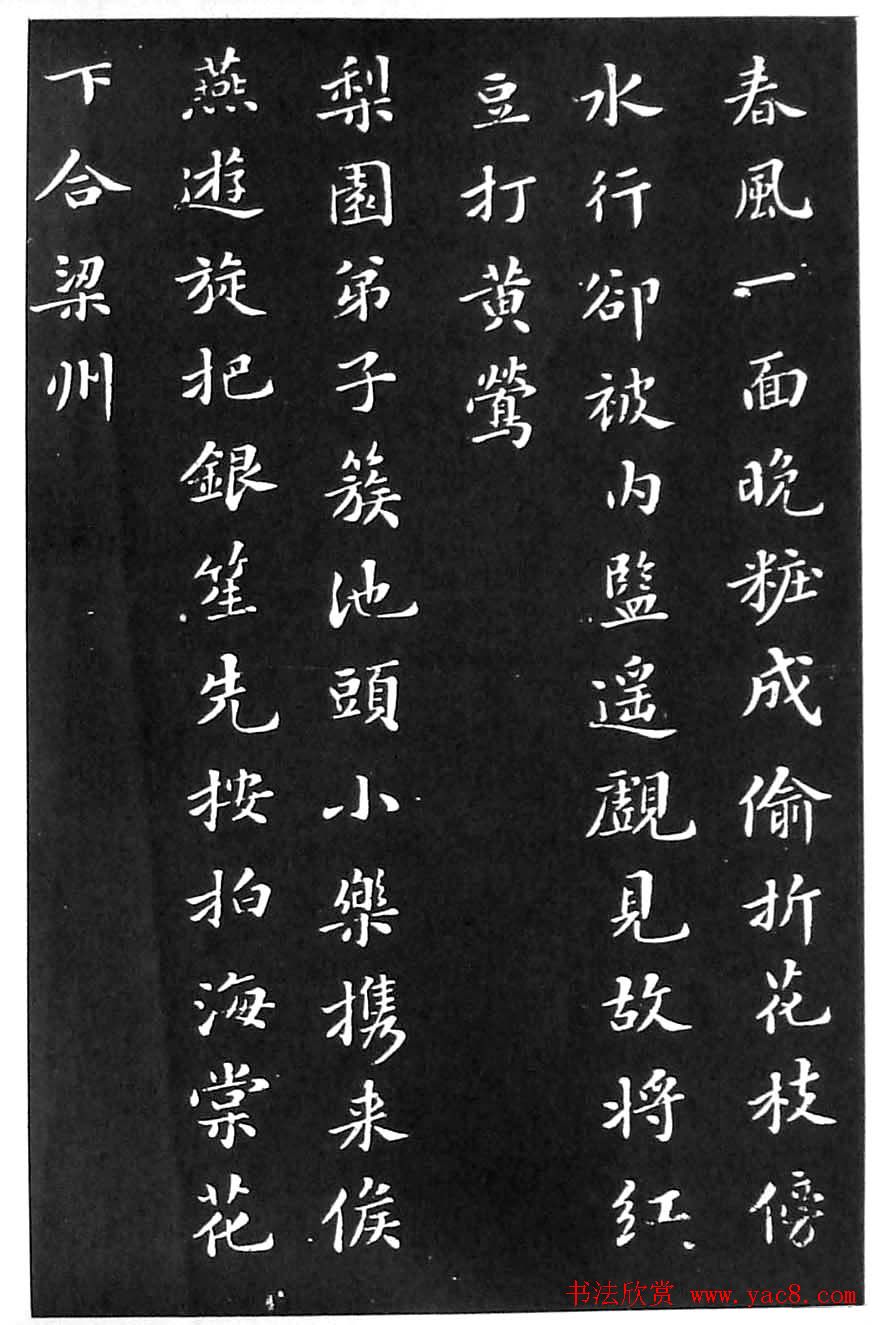 春風一面晚粧成偷折花枝傍
水行卻被内監遥覰見故将紅
豆打黄鶯
梨園弟子簇池頭小樂携来俟
燕遊旋把銀笙先按拍海棠花
下合梁州
书法欣赏 www.yac8.com